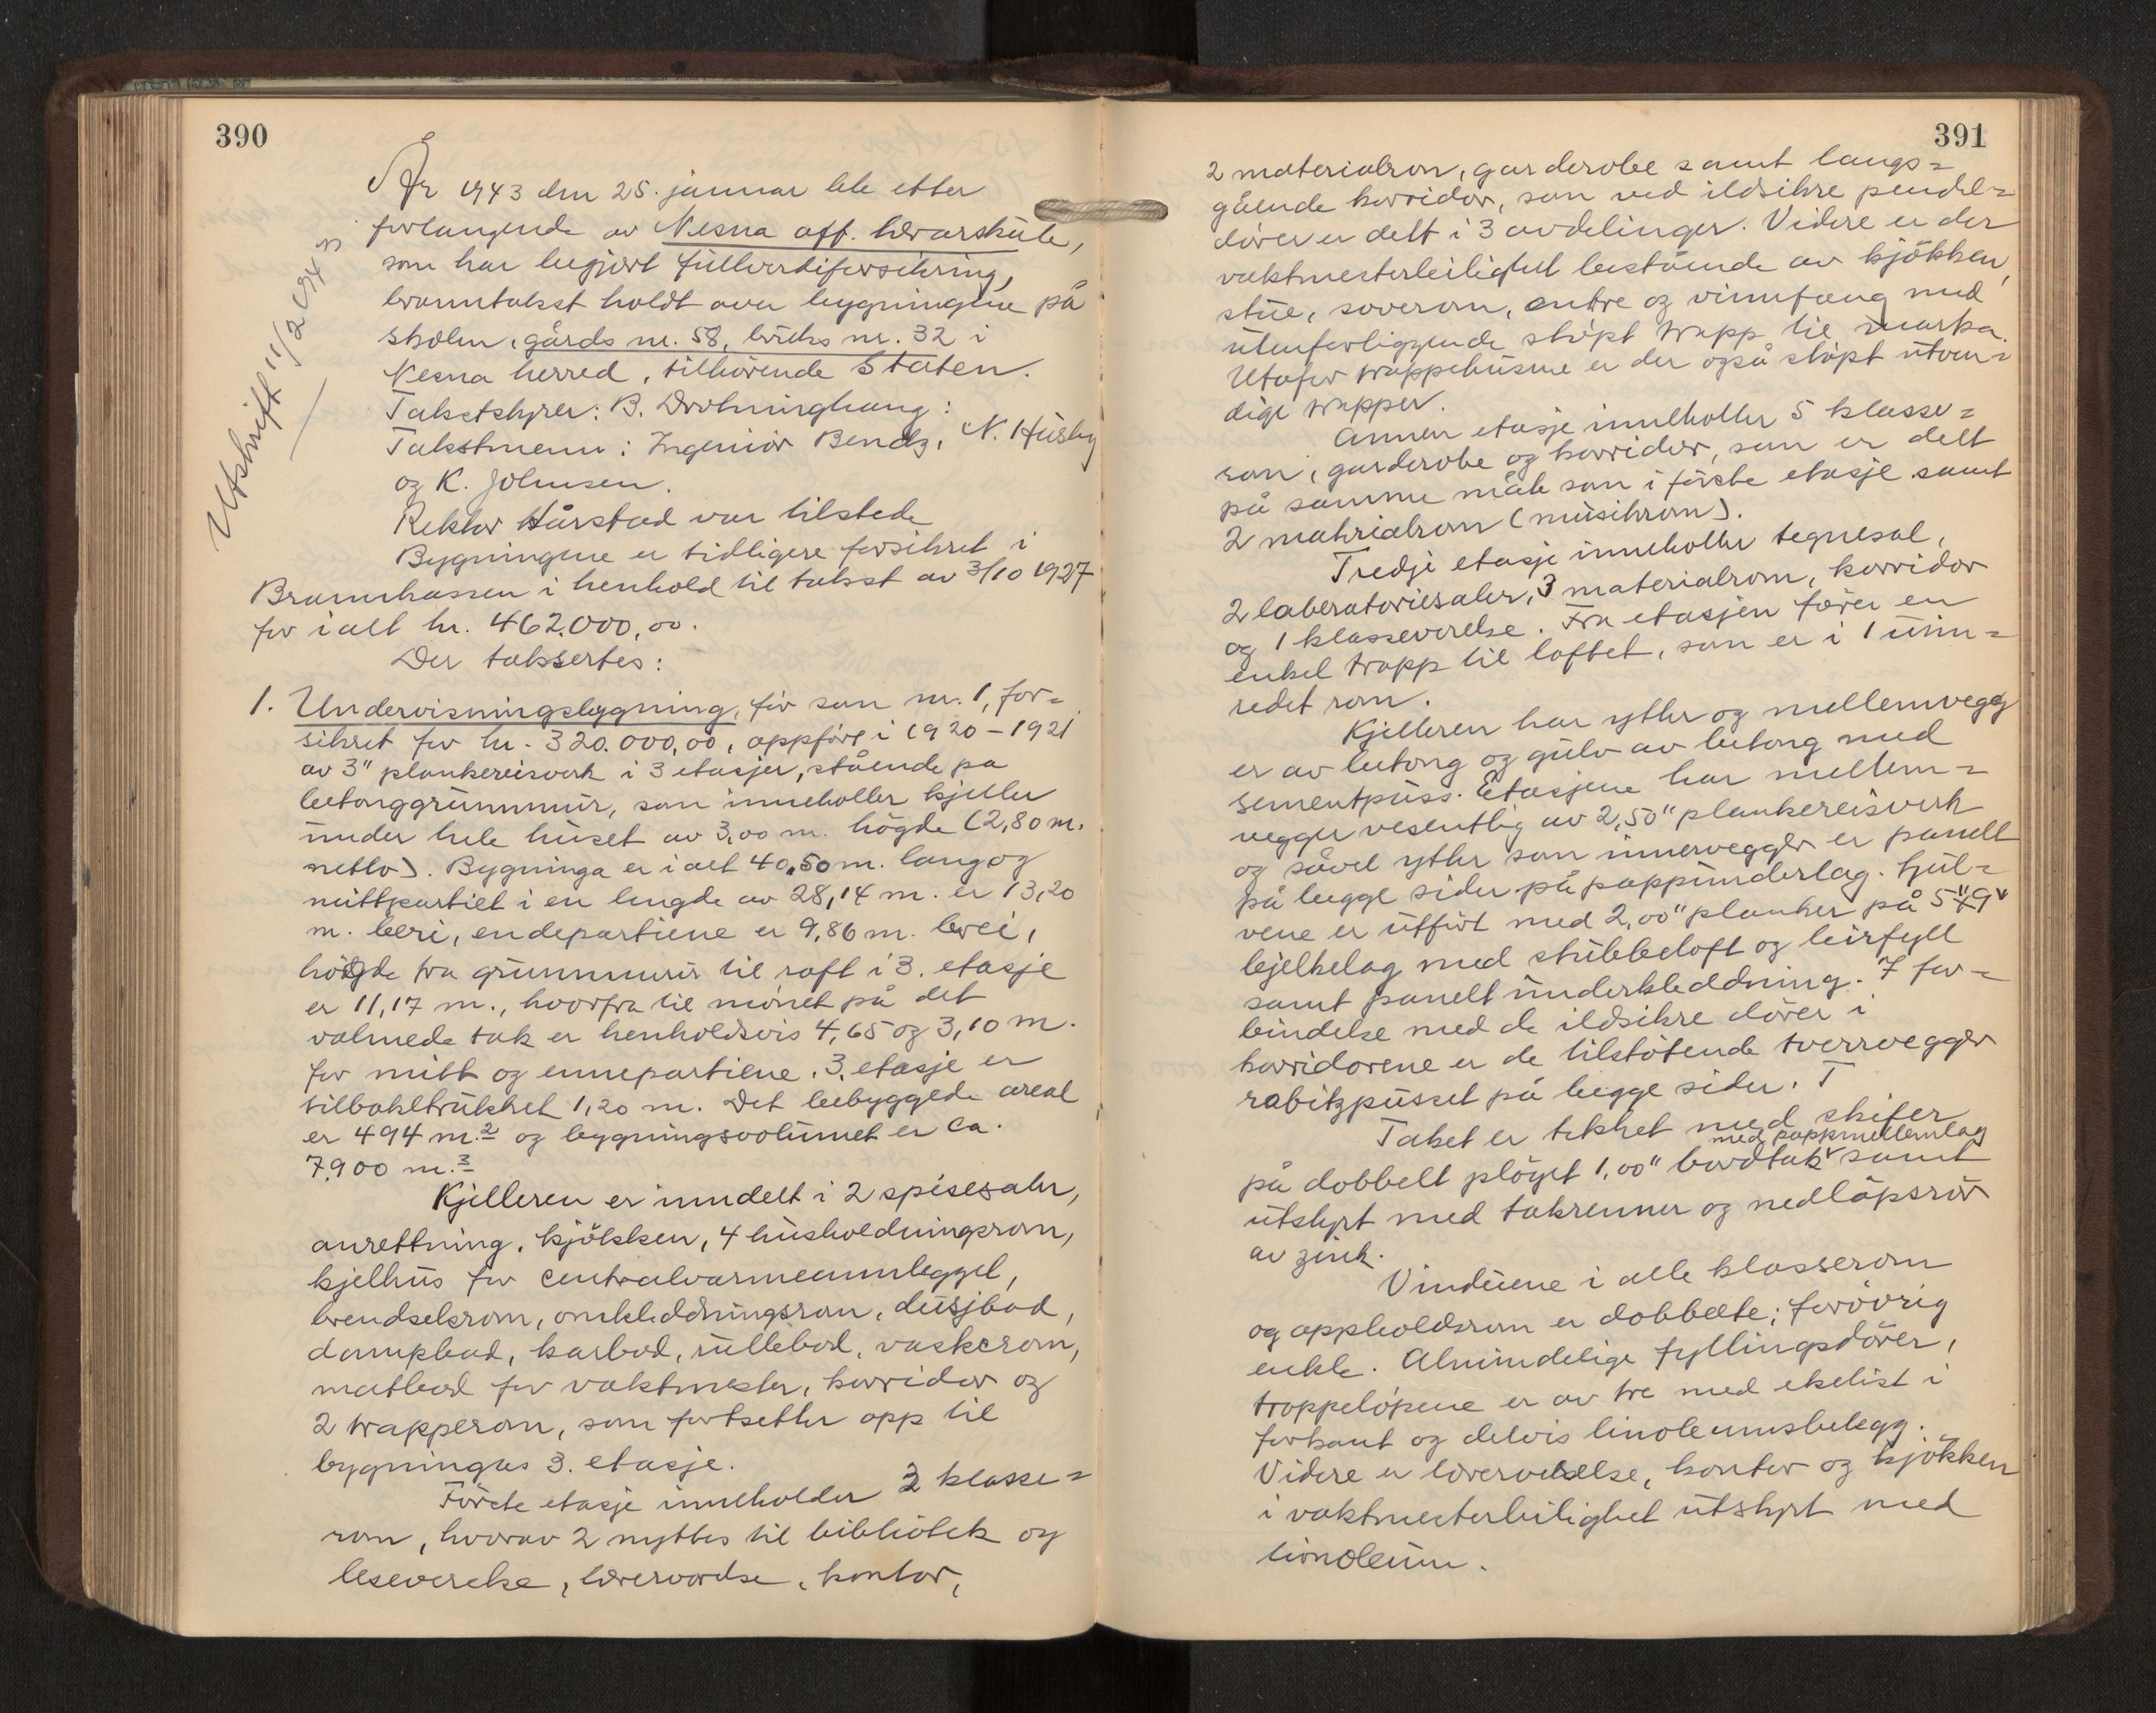 390
Utskrift 11/2 1943
År 1943 den 25. januar ble etter
forlangende av Nesna off. lærarskule,
som har begjært fullverdiforsikring,
branntakst holdt over bygningene på
skolen, gårds nr. 58, bruks nr. 32 i
Nesna herred, tilhörende Staten.
Takststyrer: B. Drotninghaug:
Takstmenn: Ingeniör Bendz, N. Husby
og K. Johnsen.
Rektor Hårstad var tilstede
Bygningene er tidligere forsikret i
Brannkassen i henhold til takst av 3/10 1927
for i alt kr. 462.000,00.
Der taksertes:
1. Undervisningsbygning, för som nr. 1, for=
sikret for kr. 320.000,00, oppfört i 1920-1921
av 3" plankereisverk i 3 etasjer, stående pa
betonggrunnmur, som inneholler kjeller
under hele huset av 3,00 m. högde (2,80 m.
netto). Bygninga er i alt 40,50 m. lang og
mittpartiet i en lengde av 28,14 m. er 13,20
m. brei, endepartiene er 9,86 m. brei,
högde fra grunnmur til raft i 3. etasje
er 11,17 m., hvorfra til mönet på det
valmede tak er henholdsvis 4,65 og 3,10 m.
for mitt og ennepartiene. 3. etasje er
tilbaketrukket 1,20 m. Det bebyggede areal
er 494 m.² og bygningsvolumet er ca.
7.900 m.³
Kjelleren er inndelt i 2 spisesaler,
anrettning, kjökken, 4 husholdningsrom,
kjelhus for centralvarmeannlegget,
brendselsrom, omkleddningsrom, dusjbad,
dampbad, karbad, rullebod, vaskerom,
matbod for vaktmester, korridor og
2 trapperom, som fortsetter opp til
bygningas 3. etasje.
Förste etasje inneholder 3 klasse=
rom, hvorav 2 nyttes til bibliotek og
leseverelse, lærerværelse, kontor,
391
2 materialrom, garderobe samt langs=
gående korridor, som ved ildsikre pendel=
dörer er delt i 3 avdelinger. Videre er der
vaktmesterleilighet bestående av kjökken,
stue, soverom, entre og vinnfang med
utenforliggende stöpt trapp til marka.
Utafor trappehusene er der også stöpt utven=
dige trapper.
Annen etasje inneholler 5 klasse=
rom, garderobe og korridor, som er delt
på samme måte som i förste etasje samt
2 matrialrom (musikrom).
Tredje etasje inneholler tegnesal,
2 laboratoriesaler, 3 materialrom, korridor
og 1 klasseverelse. Fra etasjen förer en
enkel trapp til loftet, som er i 1 uinn=
redet rom.
Kjelleren har ytter og mellemvegg
er av betong og gulv av betong med
sementpuss. Etasjene har mellem=
vegger vesentlig av 2,50" plankereisverk
og såvel ytter som innervegger er panelt
på begge sider på pappunderlag. Gul=
vene er utfört med 2,00" planker på 5"x9"
bjelkelag med stubbeloft og leirfyll
samt panelt underkleddning. I for=
bindelse med de ildsikre dörer i
korridorene er de tilstötende tverrvegger
rabitzpusset på begge sider. T
Taket er tekket med skifer
med pappmellemlag
på dobbelt plöyet 1,00" bordtak samt
utstyrt med takrenner og nedlöpsrör
av zink.
Vinduene i alle klasserom
og oppholdsrom er dobbelte; forövrig
enkle. Almindelige fyllingsdörer,
troppelöpene er av tre med ekelist i
forkant og delvis linoleumsbelegg.
Videre er lærerværelse, kontor og kjökken
i vaktmesterleilighet utstyrt med
linoleum.